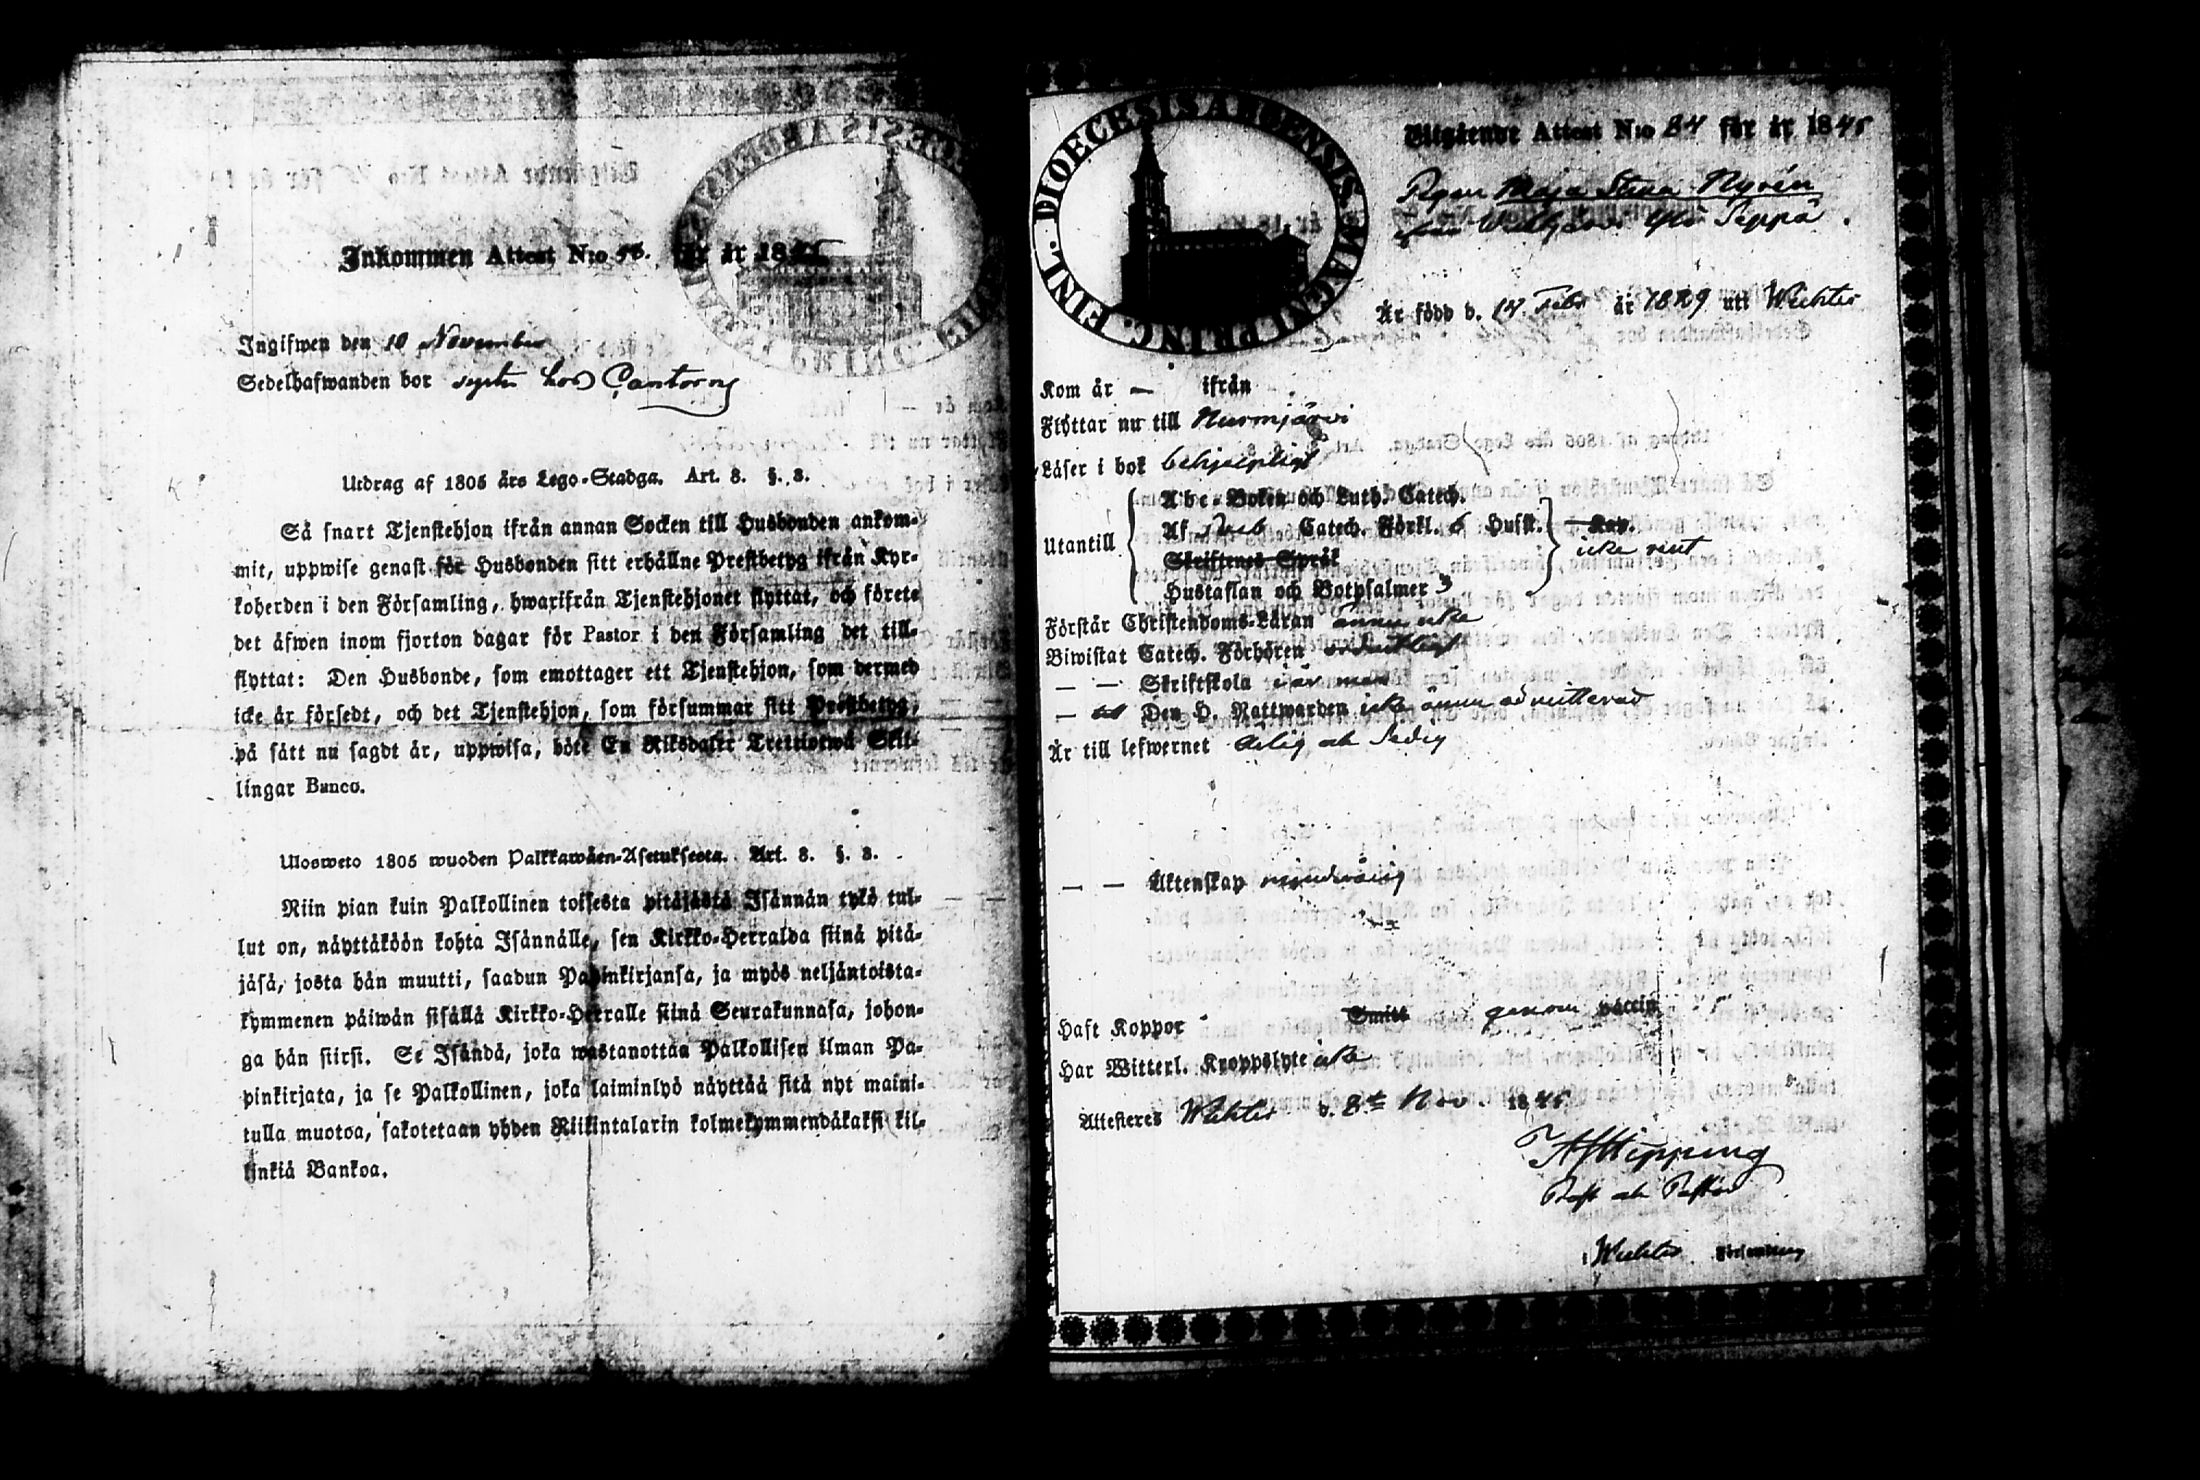 Inkommen Attest N:o 56. för år 1845
Ingifwen den 10 November
Sedelhafwanden bor hos Cantorn
Utdrag af 1805 års Lego-Stadga. Art. 8. §. 3.
Så snart Tjenstehjon ifrån annan Socken till Husbonden ankom-
mit, uppwise genast för Husbonden sitt erhållne Prestbetyg ifrån Kyr-
koherden i den Församling, hwarifrån Tjenstehjonet flyttat, och förete
det äfwen inom fjorton dagar för Pastor i den Församling det till-
flyttat: Den Husbonde, som emottager ett Tjenstehjon, som dermed
icke är försedt, och det Tjenstehjon, som försummar sitt Prestbetyg,
på sätt nu sagdt är, uppwisa, böte En Riksdaler Trettiotwå Skil-
lingar Banco.
Ulosweto 1805 wuoden Palkkawäen-Asetuksesta. Art. 8. §. 3.
Niin pian kuin Palkollinen toisesta pitäjästä Isännän tykö tul-
lut on, näyttäköön kohta Isännälle, sen Kirkko-Herralda siinä pitä-
jäsä, josta hän muutti, saadun Papinkirjansa, ja myös neljäntoista-
kymmenen päiwän sisällä Kirkko-Herralle siinä Seurakunnasa, johon-
ga hän siirsi. Se Isändä, joka wastanottaa Palkollisen ilman Pa-
pinkirjata, ja se Palkollinen, joka laiminlyö näyttää sitä nyt maini-
tulla muotoa, sakotetaan yhden Riikintalarin kolmekymmendäkaksi kil-
linkiä Bankoa.
FINL. DIOECESIS ABOENSIS MAGNI PRINC.
Utgående Attest N:o 84 för år 1845
Pigan Maja Stina Nyrén
från Seppä.
Är född d. 14 Febr år 1829 uti Wichtis
Kom år — ifrån
Flyttar nu till Nurmijärvi
Läser i bok behjelpligt
Utantill
Abc-Boken och Luth. Catech.
Af Catech. Förkl. 6 Hufst. Kap.
Skriftenes Språk
icke rent
Hustaflan och Botpsalmer 3
Förstår Christendoms-Läran ännu icke
Biwistat Catech. Förhören ordentligt
— — Skriftskola i år men
— Den H. Nattwarden icke ännu admitterad
Är till lefwernet ärlig och sedig
— — Äktenskap minderårig
Haft Koppor Smitt genom vaccin
Har Witterl. Kroppslyte icke
Attesteres Wichtis d. 8de Nov. 1845
A J Hipping
Prost och Pastor
i Wichtis Församling